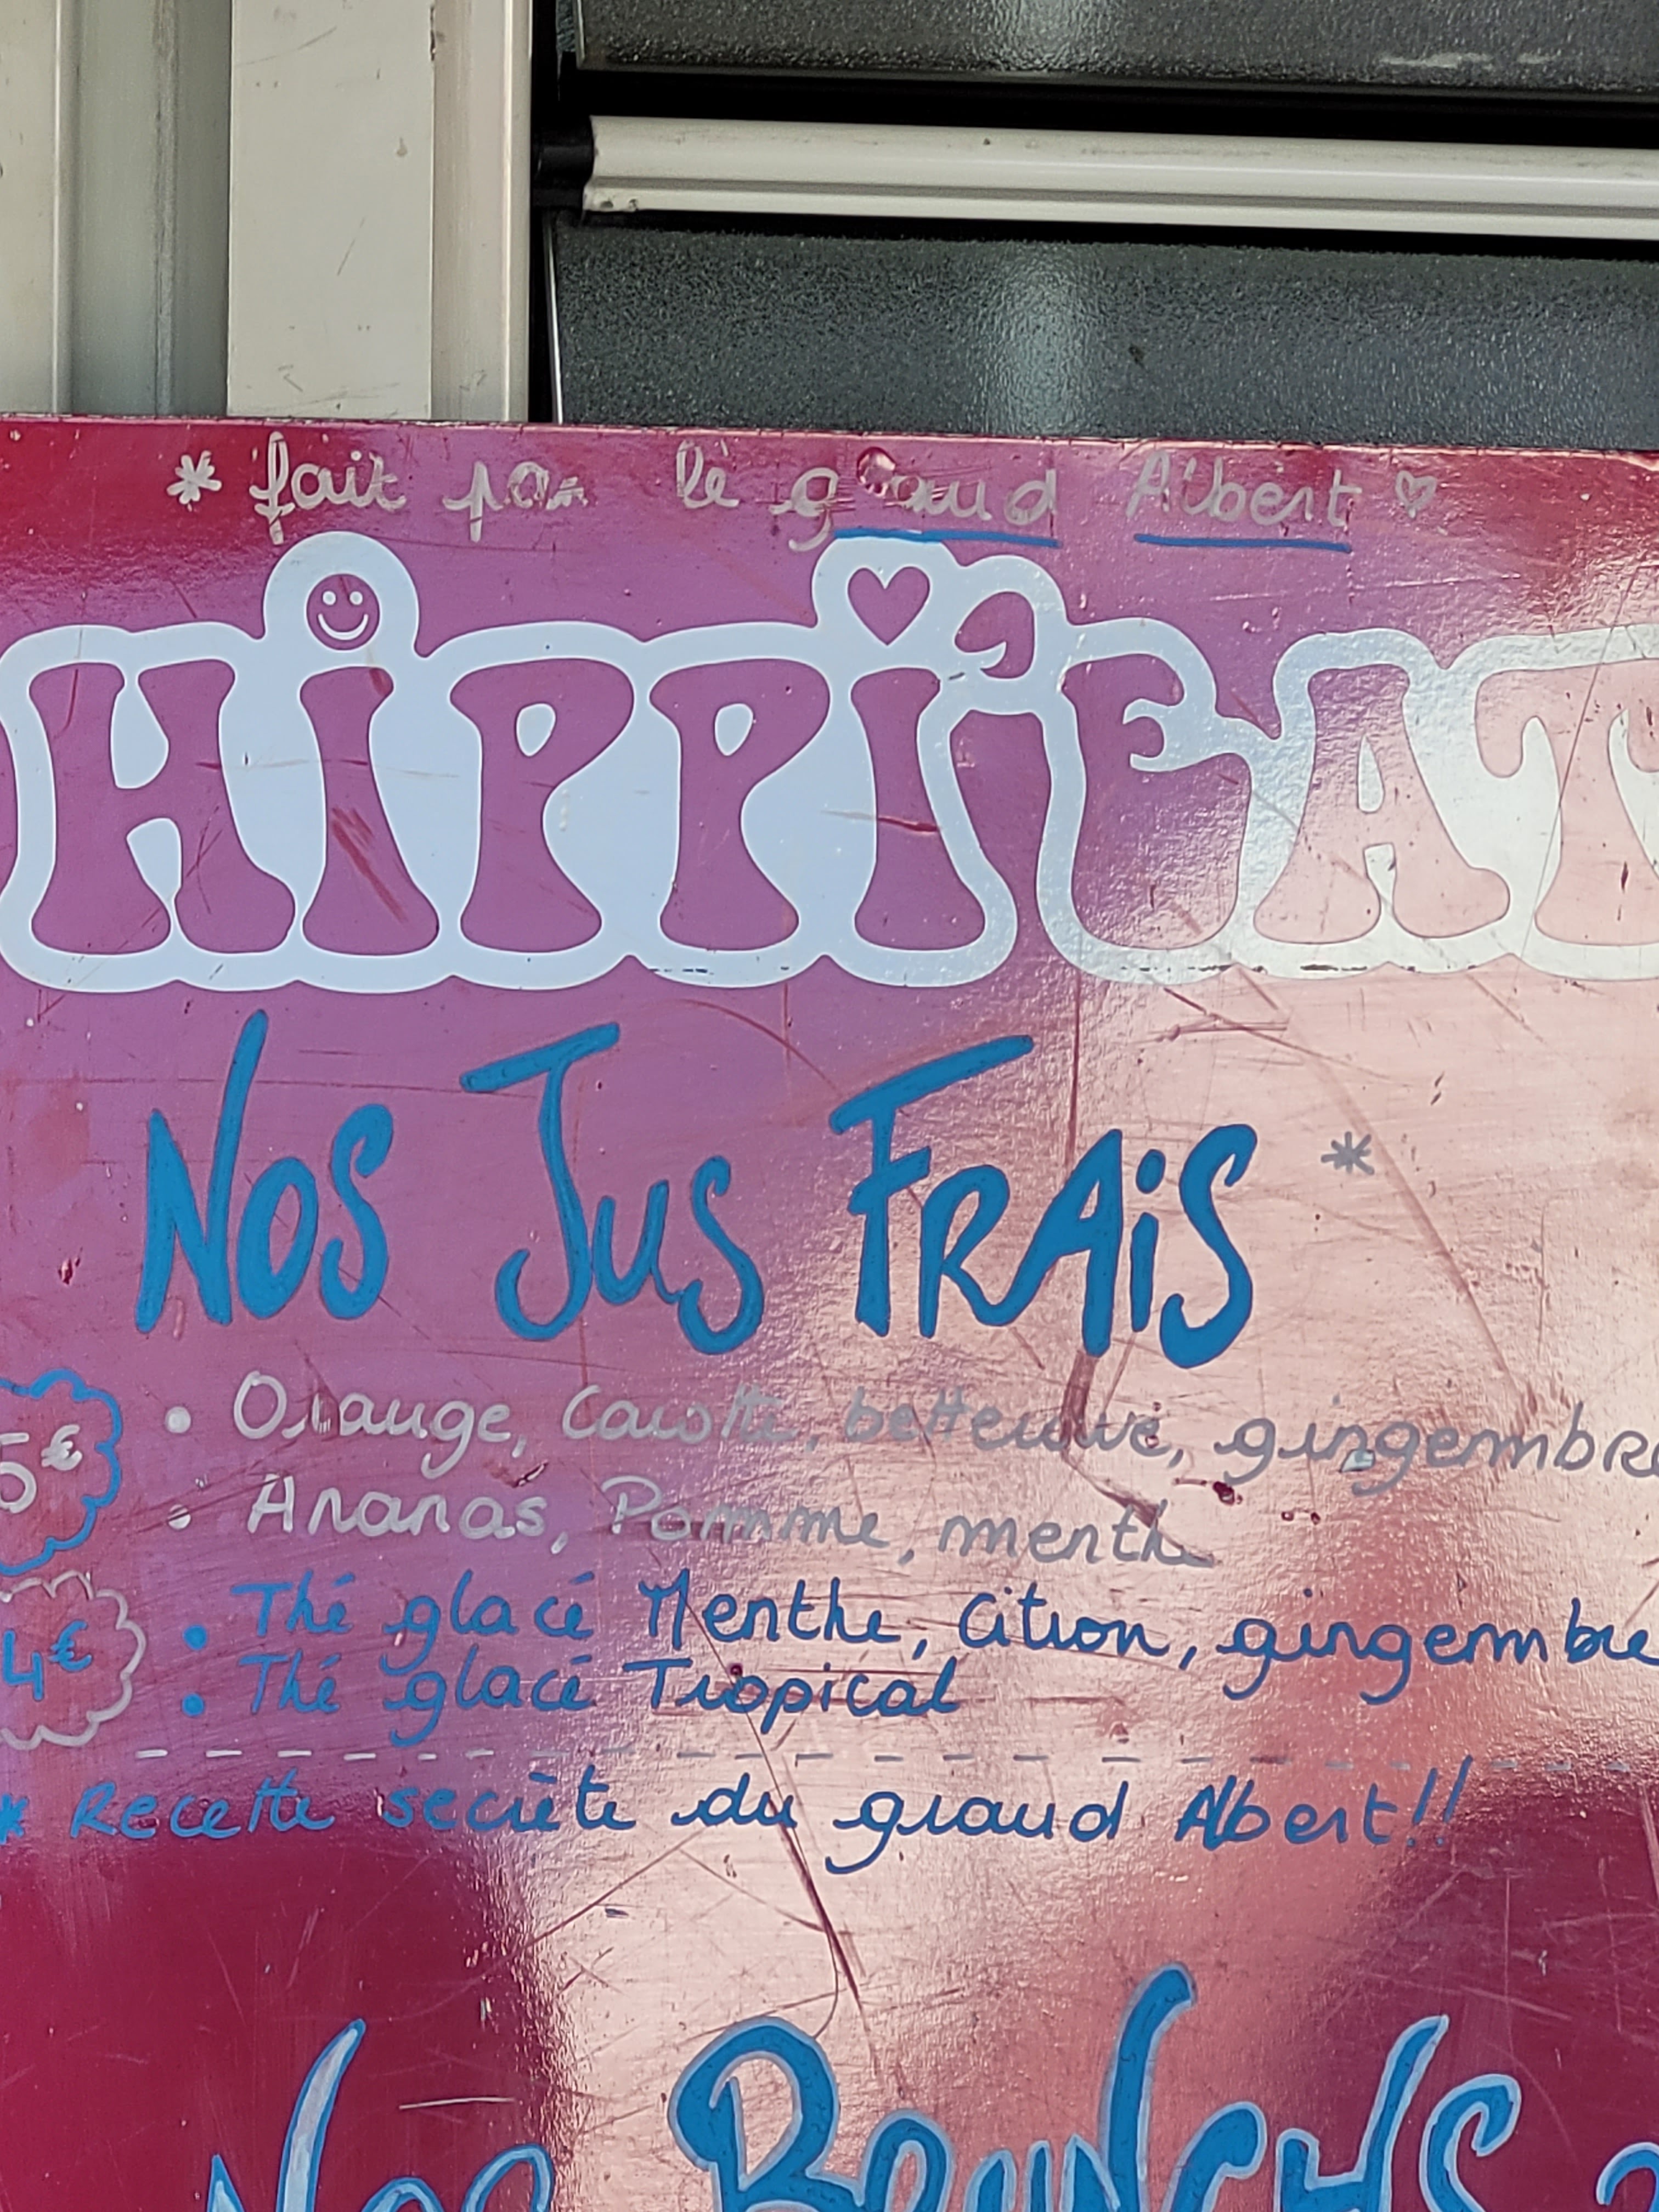 * fait par le grand Albert ♡
HiPPi'EAT
NOS JUS FRAiS *
5€ • Orange, Carotte, betterave, gingembre
• Ananas, Pomme, menthe
4€ • Thé glacé Menthe, Citron, gingembre
• Thé glacé Tropical
* Recette secrète du grand Albert!!
NOS BRUNCHS